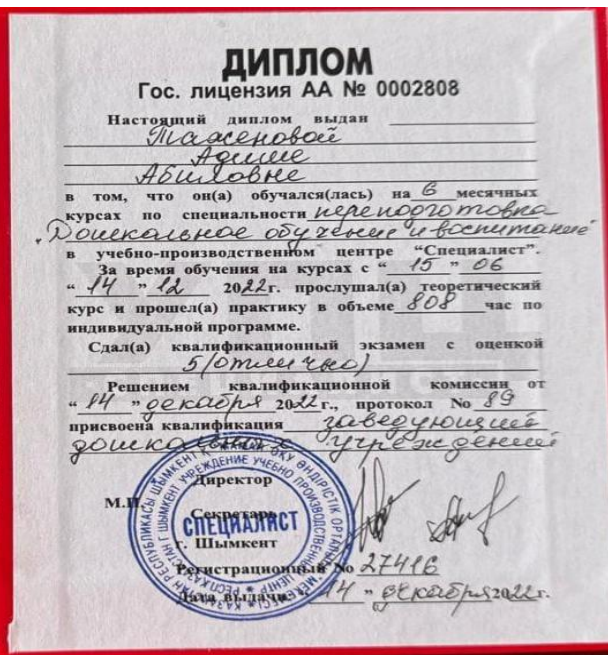 ДИПЛОМ
Гос. лицензия АА № 0002808
Настоящий диплом выдан
Таженовой
Адише
Абиловне
в том, что он(а) обучался(лась) на 6 месячных
курсах по специальности переподготовка
"Дошкальное обучение и воспитание"
в учебно-производственном центре "Специалист".
За время обучения на курсах с "15" 06
"14" 12 2022г. прослушал(а) теоретический
курс и прошел(а) практику в объеме 808 час по
индивидуальной программе.
Сдал(а) квалификационный экзамен с оценкой
5/отлично)
Решением квалификационной комиссии от
"14" декабря 2022 г., протокол No 89
присвоена квалификация заведующий
дошкальных учреждений
Директор
М.П.
Секретарь
СПЕЦИАЛИСТ
г. Шымкент
Регистрационный No 27416
Дата выдачи "14" декабря 2022г.